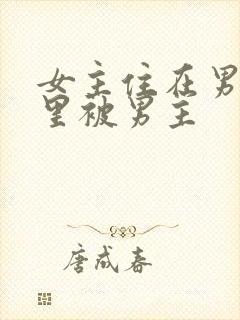 女主住在男
里被男主
唐成春